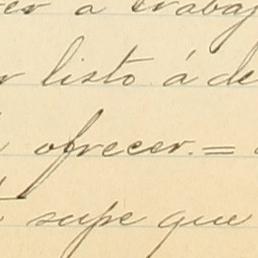 er a trabaj
r listo á de
ofrecer. =
supe que